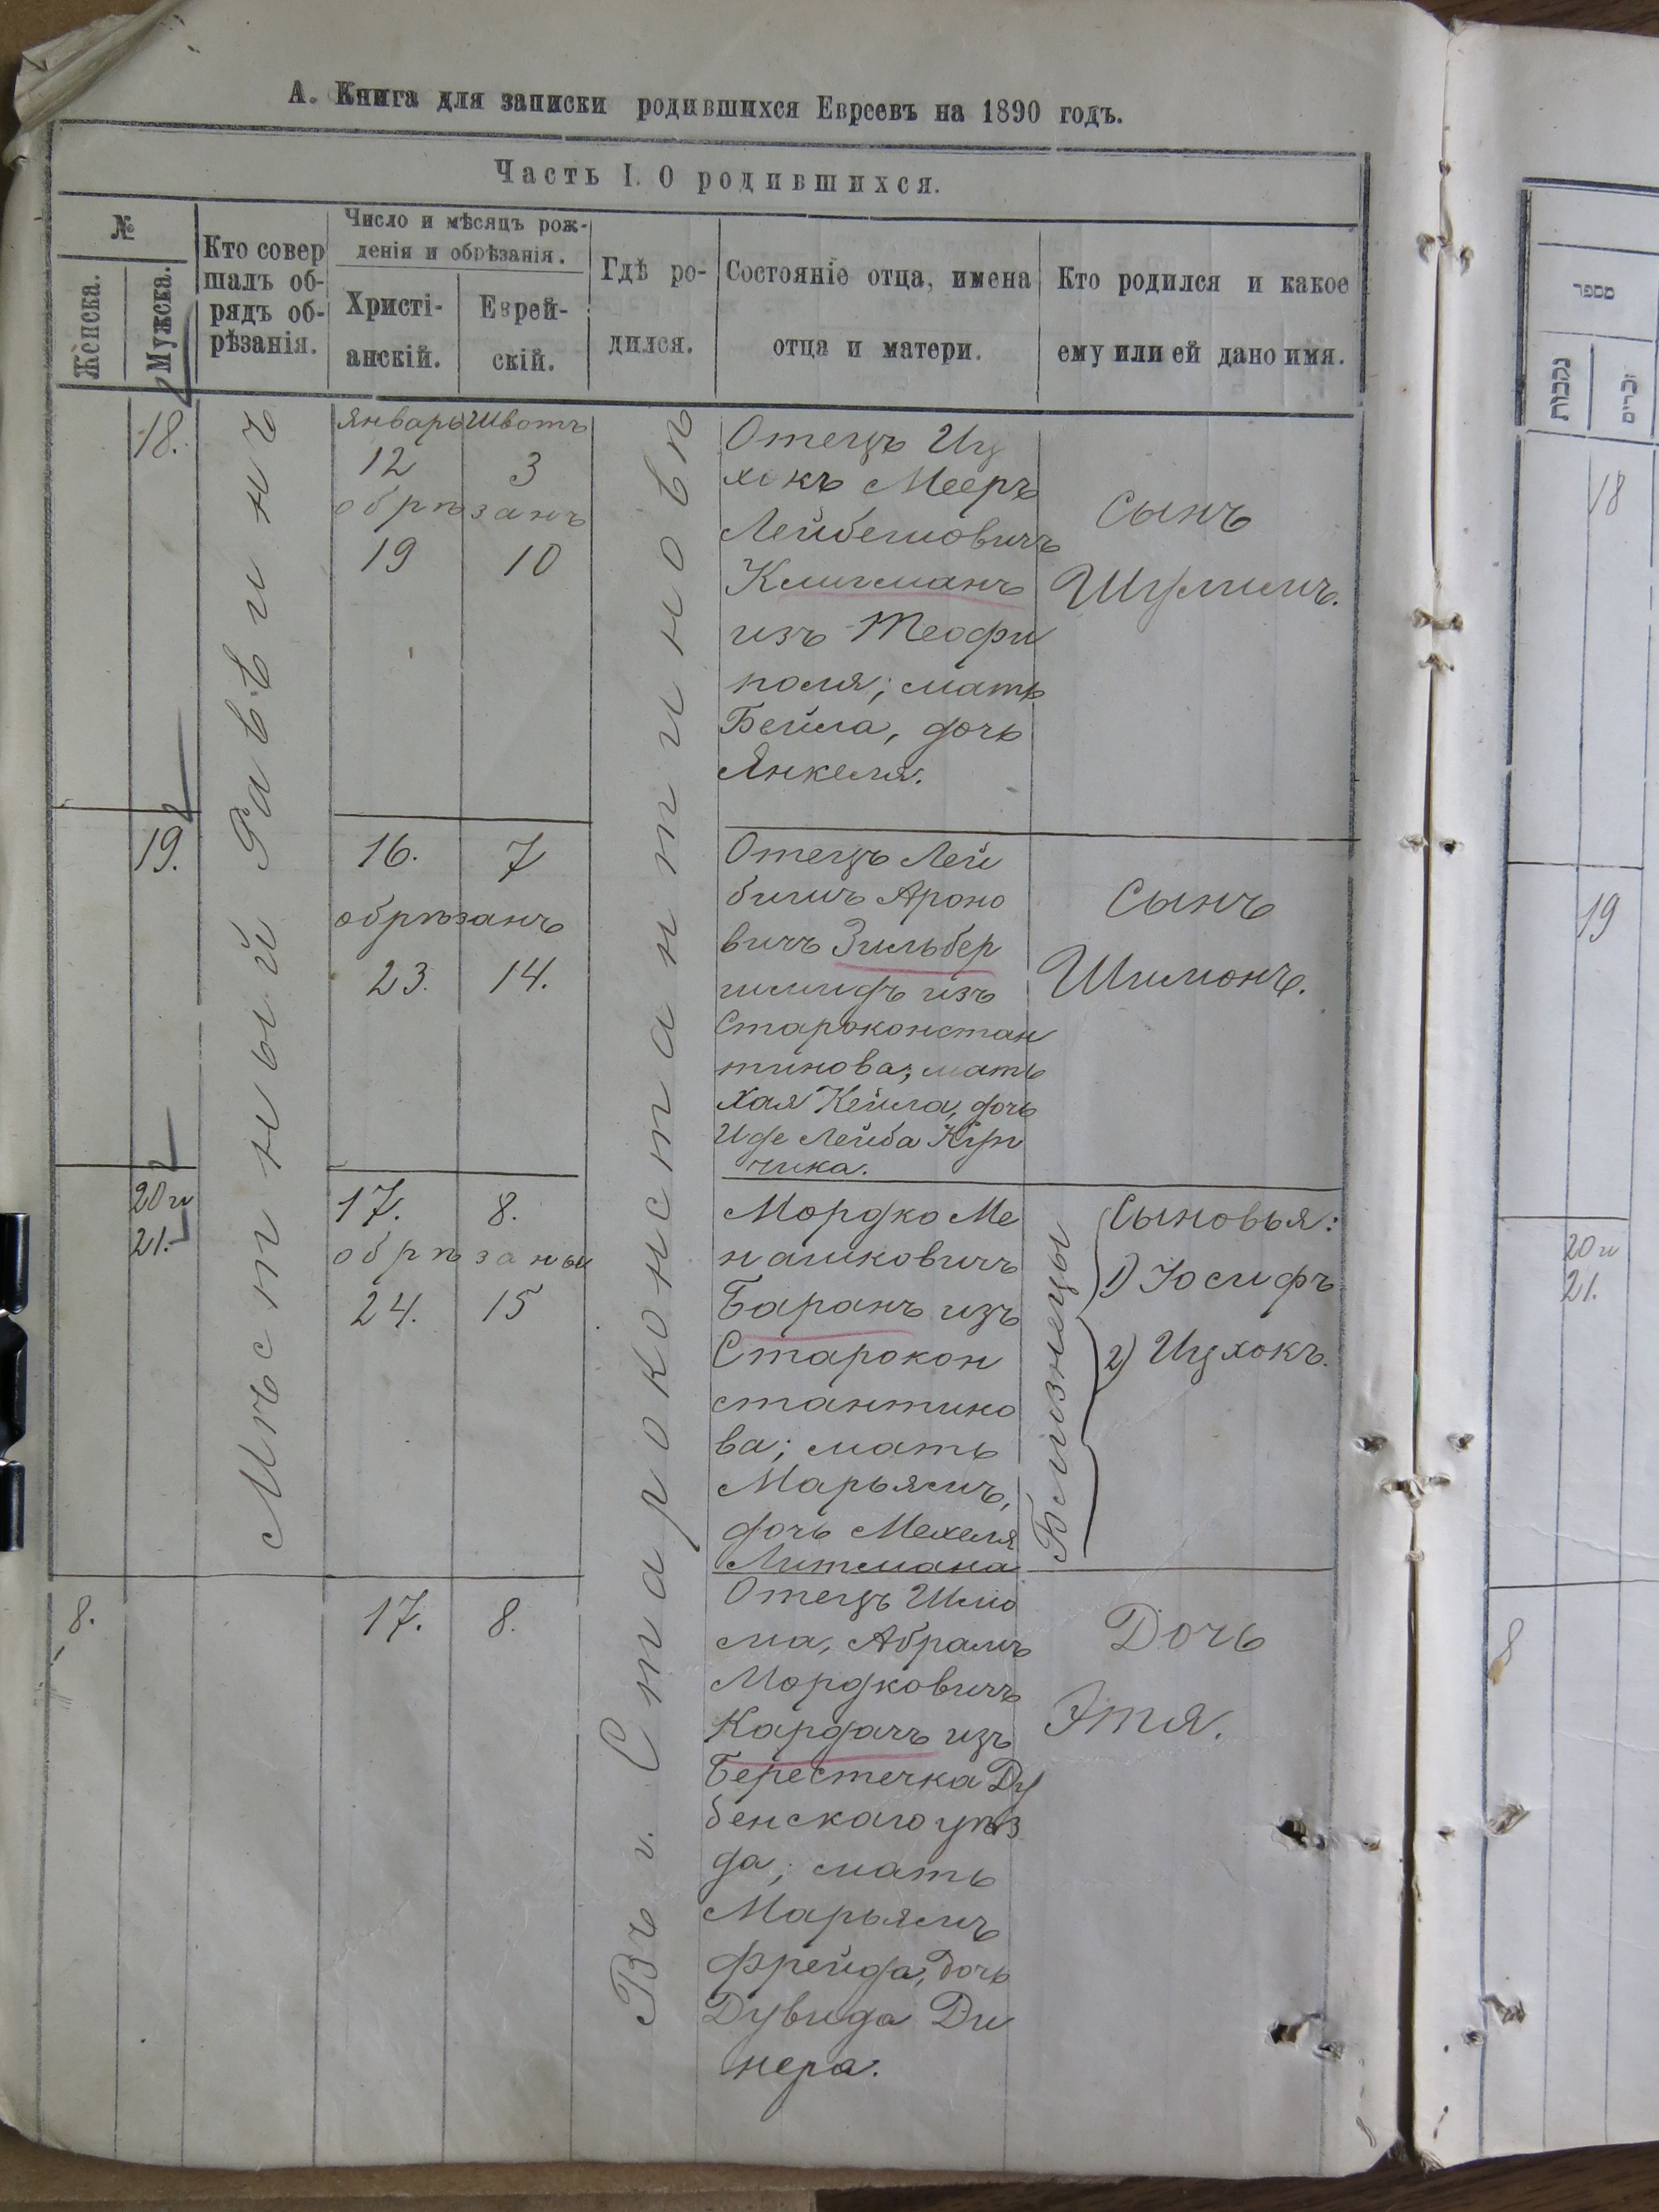 А. Книга для записки родившихся Евреевъ на 1890 годъ.
Часть I. О родившихся.
№
Женска.
Мужска.
Кто совер
шалъ об-
рядъ об-
рѣзанія.
Число и мѣсяцъ рож-
денія и обрѣзанія.
Христі-
анскій.
Еврей-
скій.
Гдѣ ро-
дился.
Состояніе отца, имена
отца и матери.
Кто родился и какое
ему или ей дано имя.
Мѣстный Раввинъ
Въ г. Староконстантиновѣ
18.
Январь Шватъ
12 3
обрѣзанъ
19 10
Отецъ Иц
хокъ Мееръ
Лейбешовичъ
Клигманъ
изъ Теофи
поля; мать
Бейла, дочь
Янкеля.
Сынъ
Шулимъ.
19.
16. 7
обрѣзанъ
23. 14.
Отецъ Лей
бишъ Ароно
вичъ Зильбер
шлифъ изъ
Староконстан
тинова; мать
Хая Кейла, дочь
Иде Лейба Куп
чика.
Сынъ
Шимонъ.
20 и
21.
17. 8.
обрѣзаны
24. 15
Мордко Ме
нашковичъ
Баранъ изъ
Старокон
стантино
ва; мать
Марьямъ,
дочь Мехеля
Литмана
Близнецы
Сыновья:
1) Іосифъ
2) Ицхокъ.
8.
17. 8.
Отецъ Шло
ма, Абрамъ
Мордковичъ
Кардачъ изъ
Берестечка Ду
бенскаго уѣз
да; мать
Марьямъ
Фрейда, дочь
Дувида Ди
нера.
Дочь
Этя.
מספר
נקבות
זכרים
18
19
20 и
21.
8